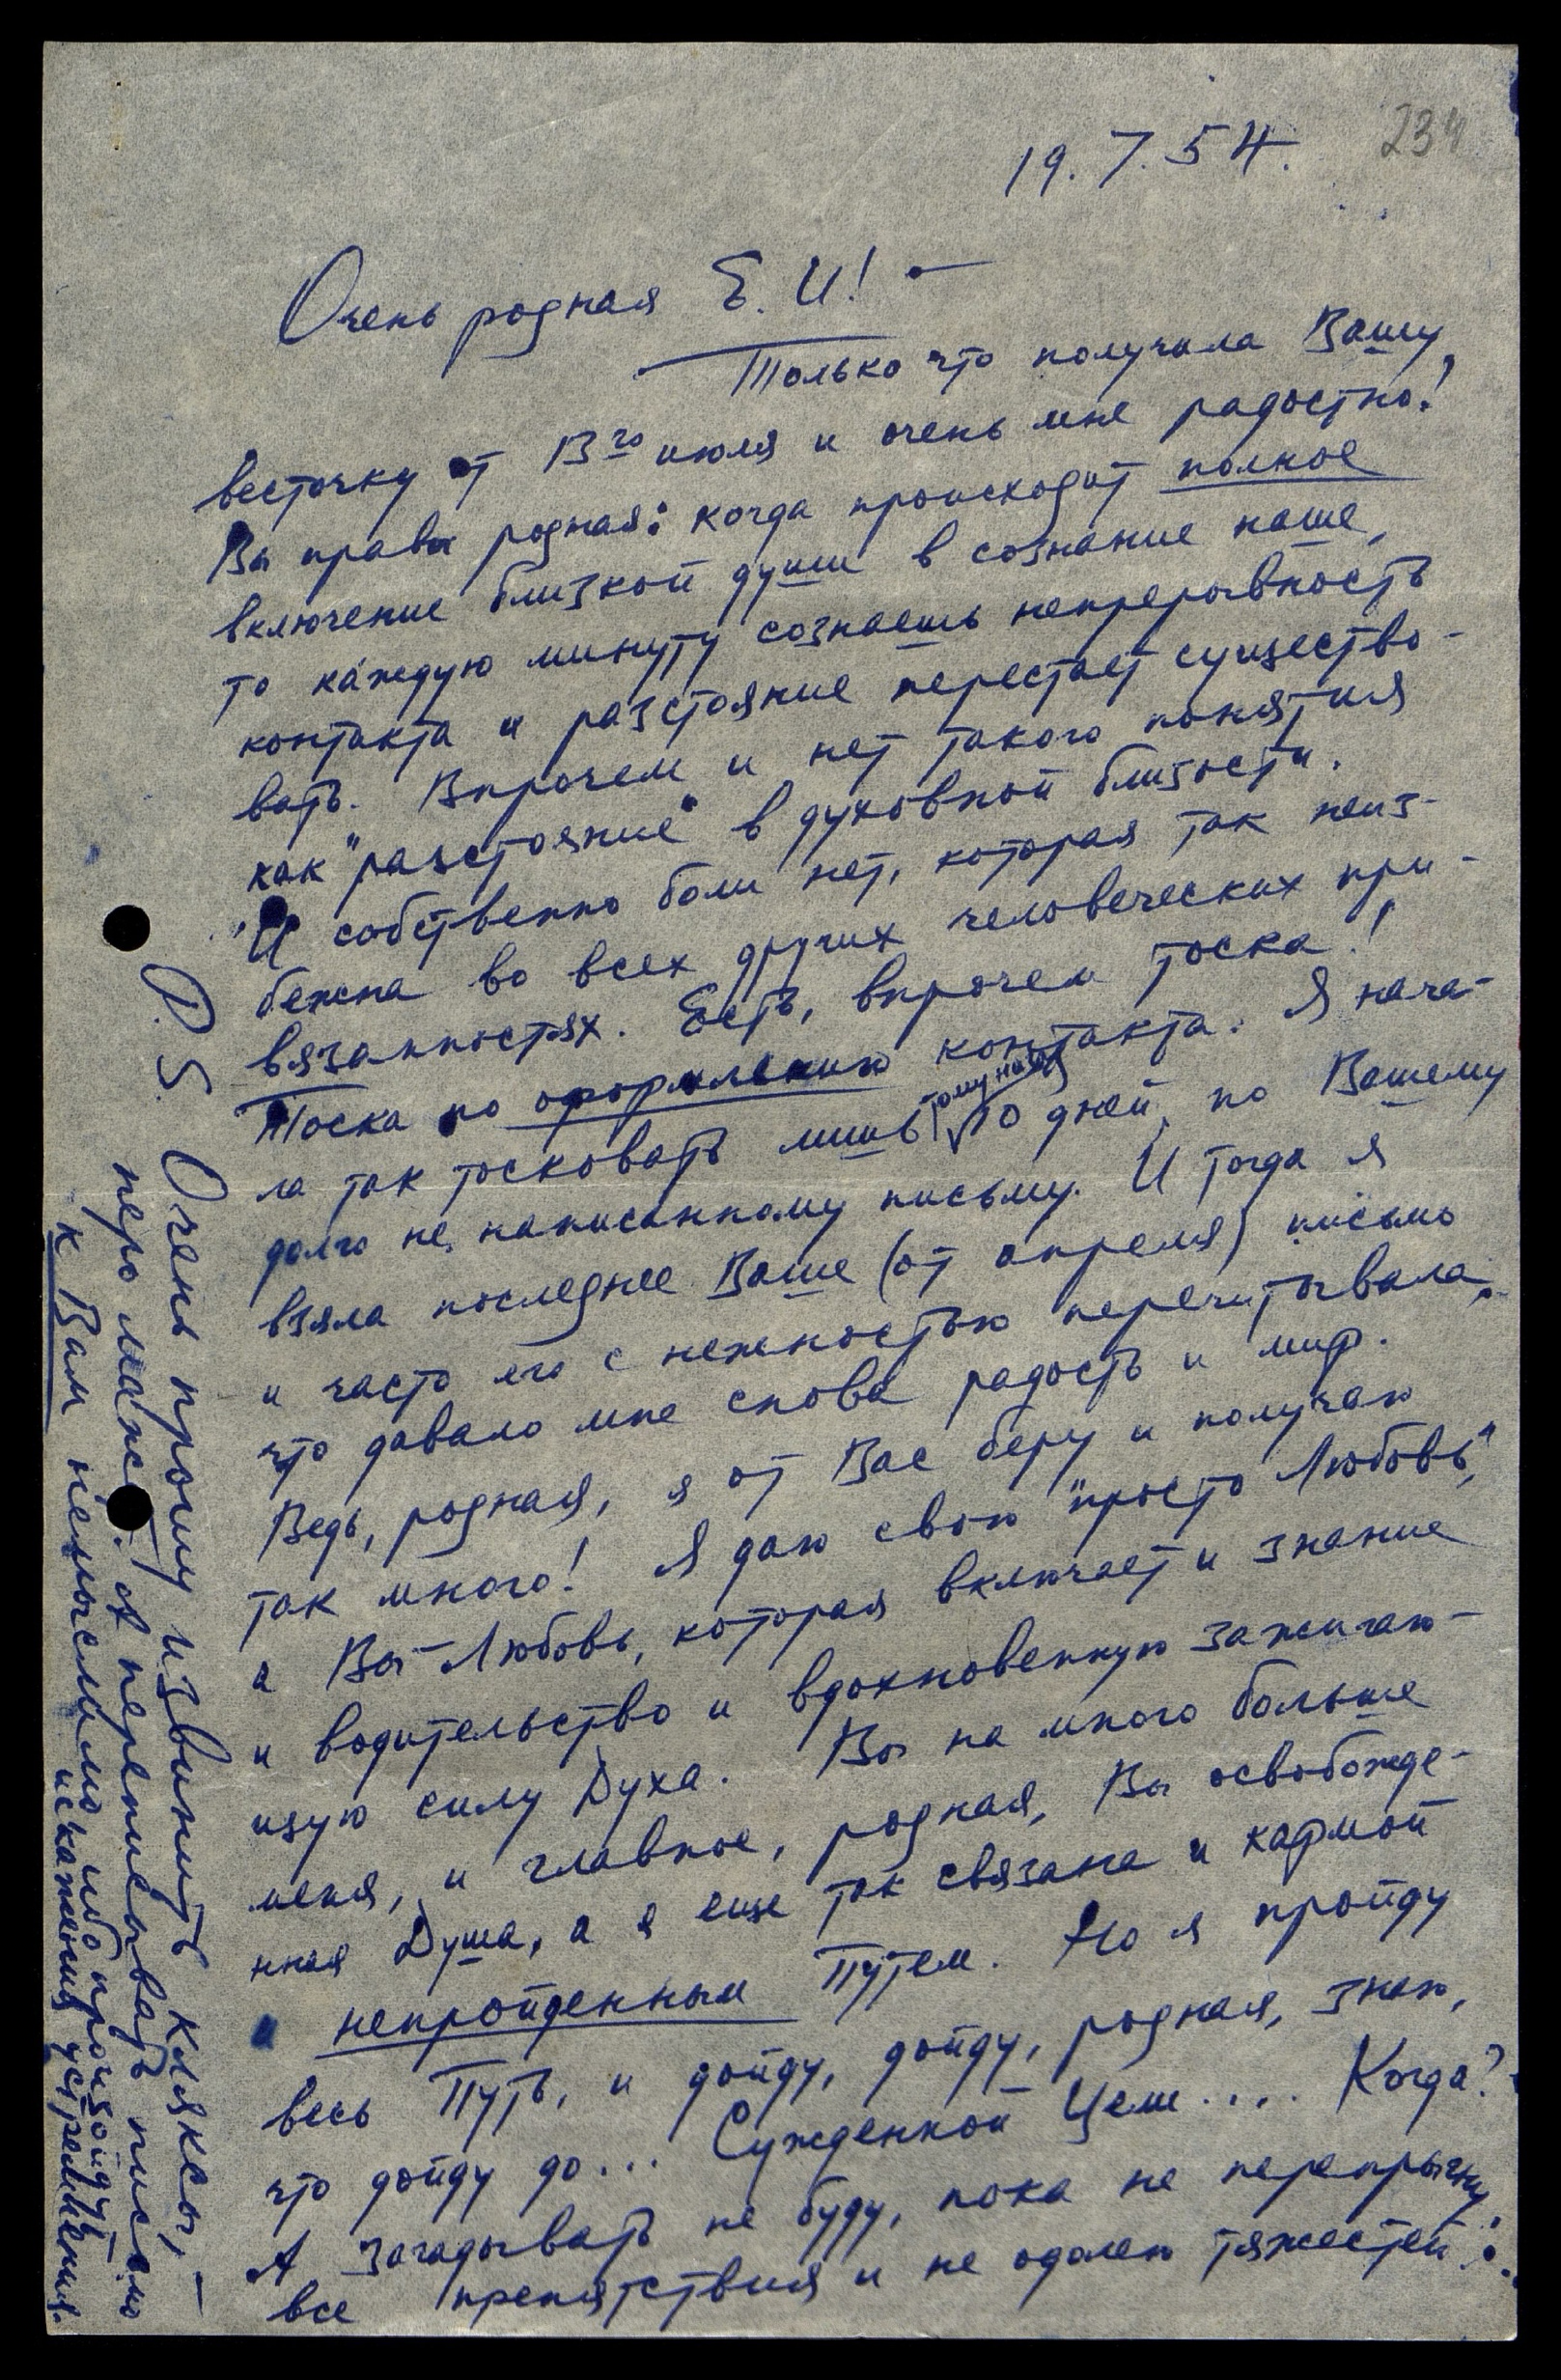 234
19. 7. 54.
Очень родная Е. И! —
Только что получила Вашу
весточку от 13го июля и очень мне радостно!
Вы правы родная: когда происходит полное
включение близкой души в сознание наше,
то каждую минуту сознаешь непрерывность
контакта и разстояние перестает существо-
вать. Впрочем и нет такого понятия
как "разстояние" в духовной близости.
И собственно боли нет, которая так неиз-
бежна во всех других человеческих при-
вязанностях. Есть, впрочем тоска!
Тоска по оформлению контакта. Я нача-
ла так тосковать лишь тому назад 10 дней, по Вашему
долго не написанному письму. И тогда я
взяла последнее Ваше (от апреля) письмо
и часто его с нежностью перечитывала,
что давало мне снова радость и мир.
Ведь, родная, я от Вас беру и получаю
так много! Я даю свою "просто Любовь,"
а Вы – Любовь, которая включает и знание
и водительство и вдохновенную зажигаю-
щую силу Духа. Вы на много больше
меня, и главное, родная, Вы освобожде-
нная Душа, а я еще так связана и кармой
непройденным Путем. Но я пройду
весь Путь, и дойду, дойду, родная, знаю,
что дойду до... Сужденной Цели.... Когда?
А загадывать не буду, пока не перепрыгну
все препятствия и не одолею тяжестей...
P. S. Очень прошу извинить кляксы, —
перо мажет. А переписывать письмо
к Вам немыслимо ибо произойдут
искажения устремления.